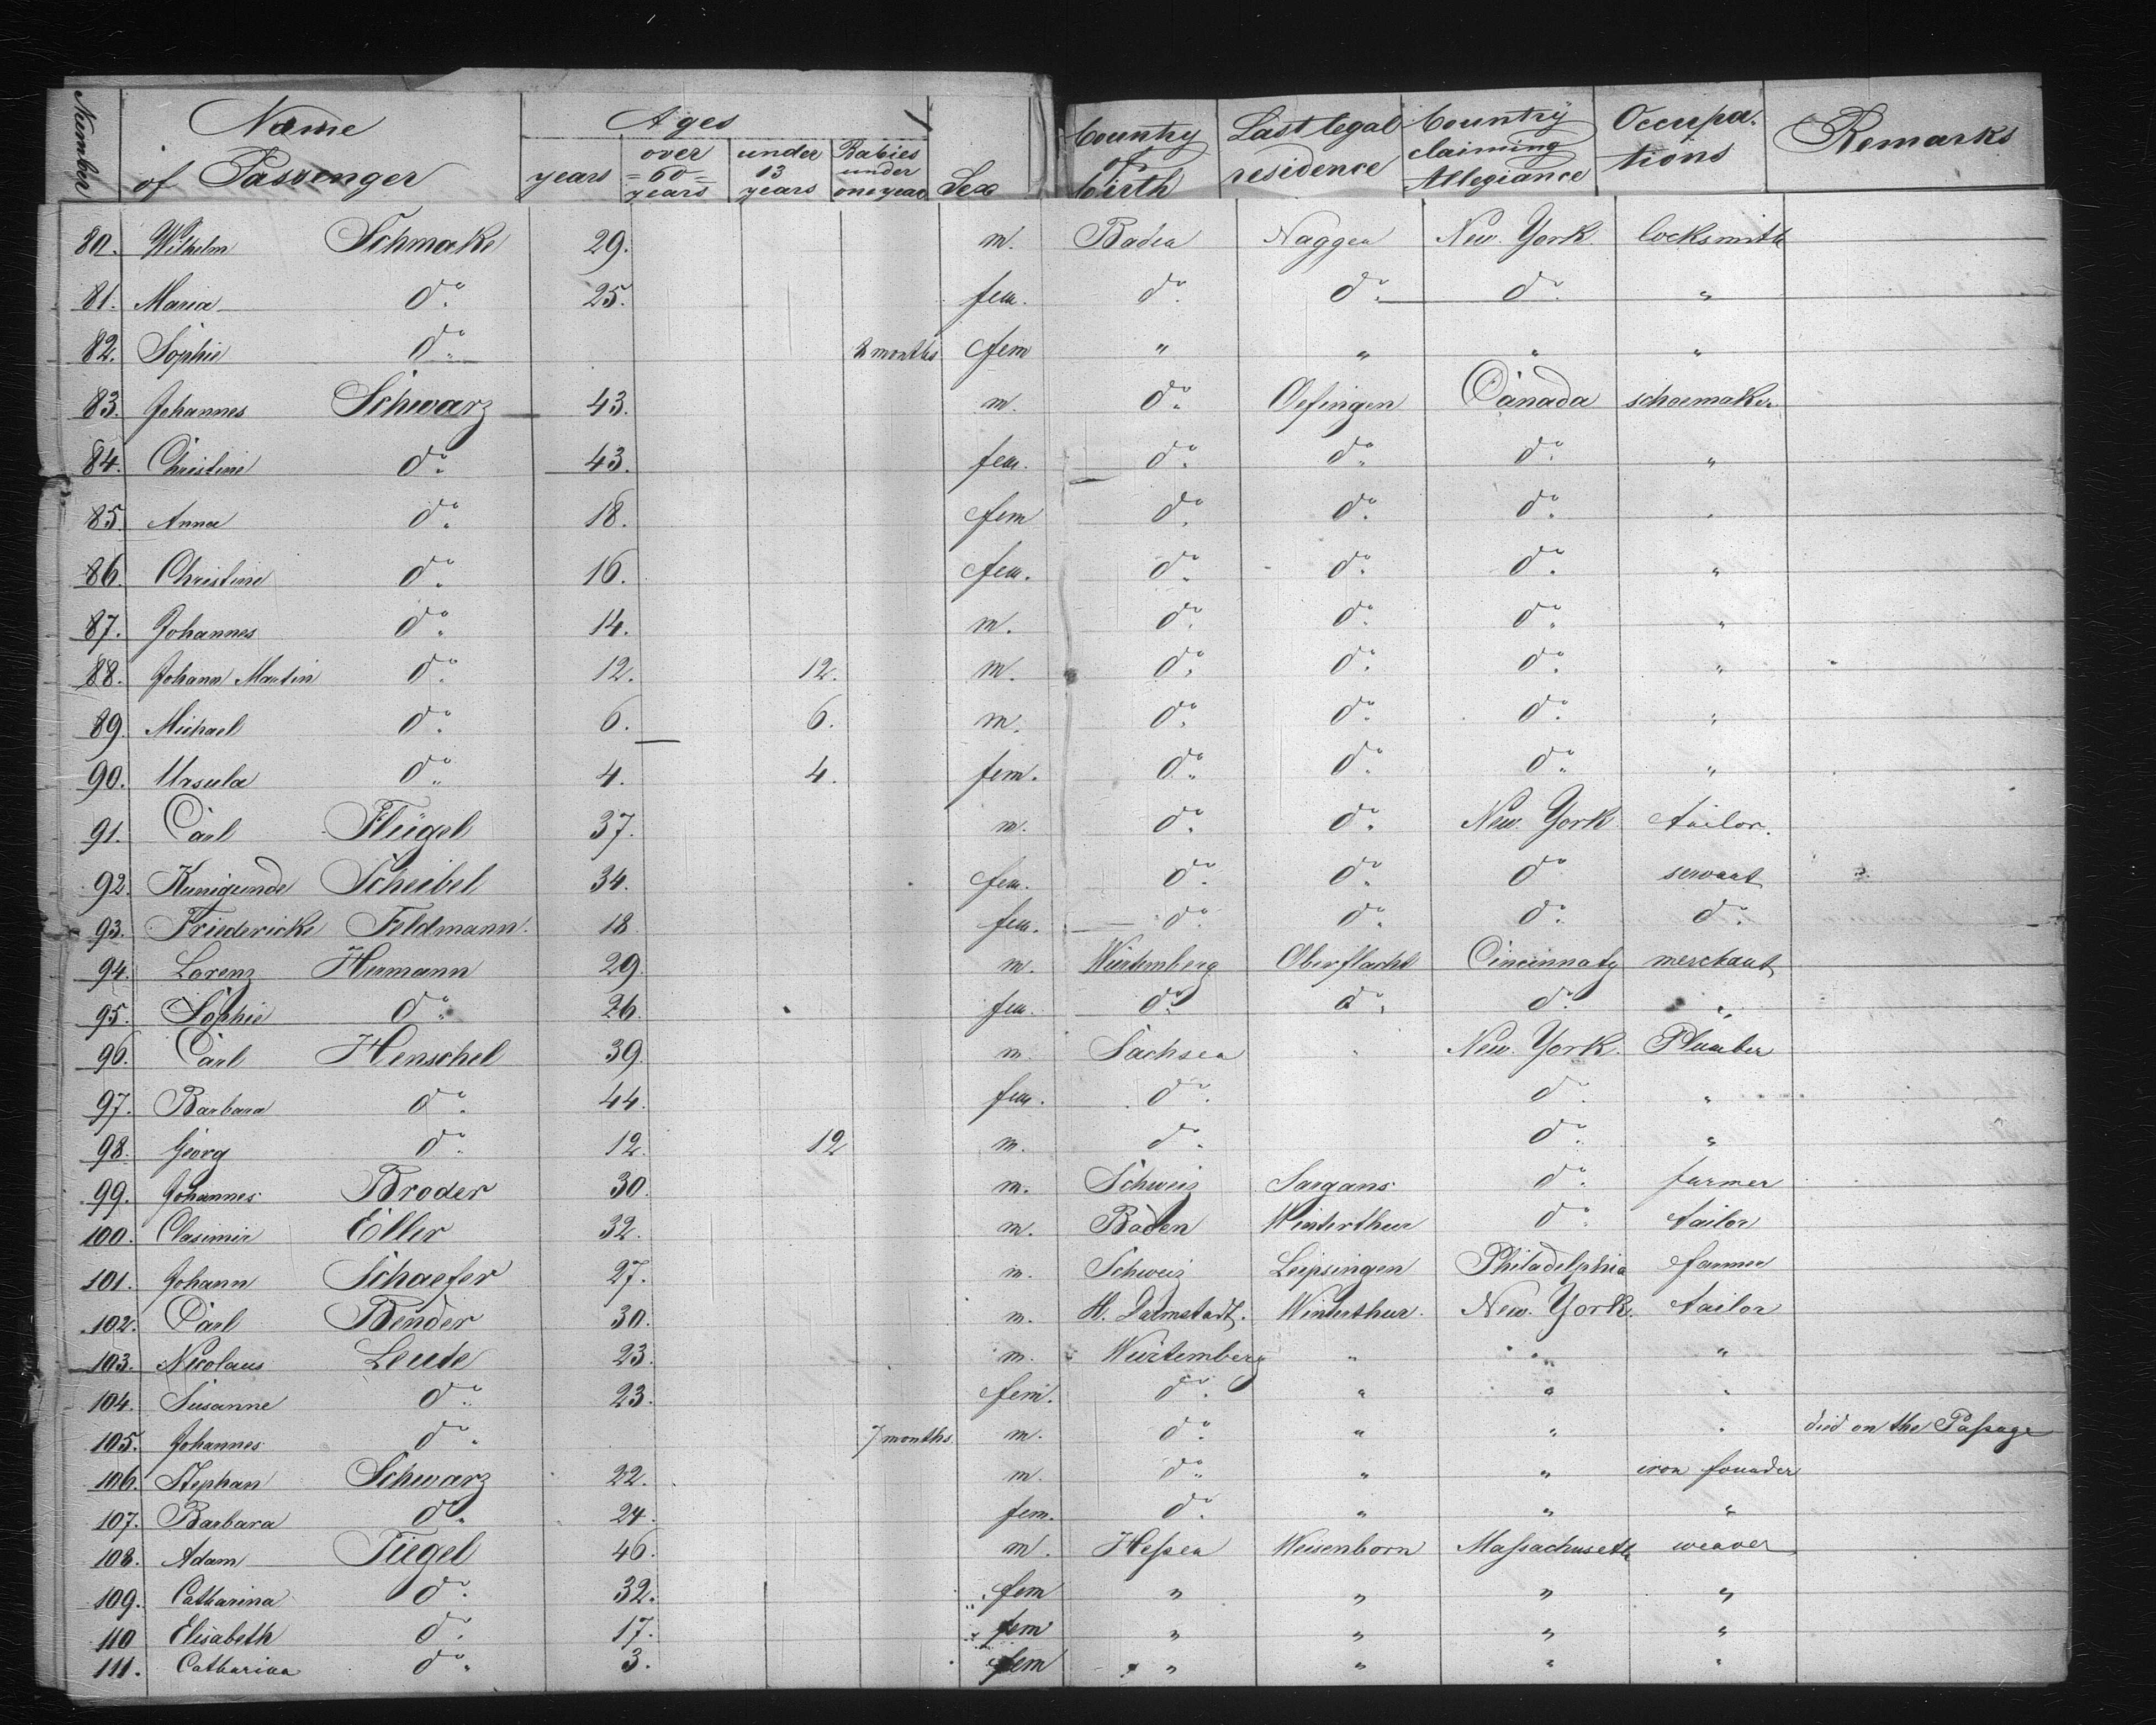 Number Name of Passenger Ages years over 60 years under 13 years Babies under one year Sex Country of birth Last legal residence Country claiming Allegiance Occupations Remarks
80. Wilhelm Schmake 29. m. Baden Naggen New. York. locksmith
81. Maria do. 25. fem. do. do. do. "
82. Sophie do. 8 months fem " " " "
83. Johannes Schwarz 43. m. do. Oefingen Canada schoemaker
84. Christine do. 43. fem. do. do. do. "
85. Anna do. 18. fem do. do. do. "
86. Christine do. 16. fem. do. do. do. "
87. Johannes do. 14. m. do. do. do. "
88. Johann Martin do. 12. 12. m. do. do. do. "
89. Michael do. 6. 6. m. do. do. do. "
90. Ursula do. 4. 4. fem. do. do. do. "
91. Carl Flügel 37. m. do. do. New. York tailor.
92. Kunigunde Scheibel 34. fem. do. do. do. servant
93. Friedericke Feldmann. 18 fem. do. do. do. do.
94. Lorenz Hermann 29. m. Würtemberg Oberflacht Cincinnaty merchant
95. Sophie do. 26. fem. do. do. do. "
96. Carl Henschel 39. m. Sachsen " New. York. Plumber
97. Barbara do. 44. fem. do. do. "
98. Georg do. 12. 12 m. do. do. "
99. Johannes Broder 30. m. Schweiz Sargans do. farmer
100. Casimir Eller 32. m. Baden Winterthur do. tailor
101. Johann Schaefer 27. m. Schweiz Leipsingen Philadelphia farmer
102. Carl Bender 30. m. H. Darmstadt. Winterthur. New. York. tailor
103. Nicolaus Leute 23. m. Würtemberg " " "
104. Susanne do. 23. fem. do. " " "
105. Johannes do. 7 months m. do. " " " died on the Passage
106. Stephan Schwarz 22. m. do. " " iron founder
107. Barbara do. 24. fem. do. " " "
108. Adam Tiegel 46. m. Hessen Weisenborn Massachusetts weaver
109. Catharina do. 32. fem " " " "
110 Elisabeth do. 17. fem " " " "
111. Catharina do. 3. fem " " " "